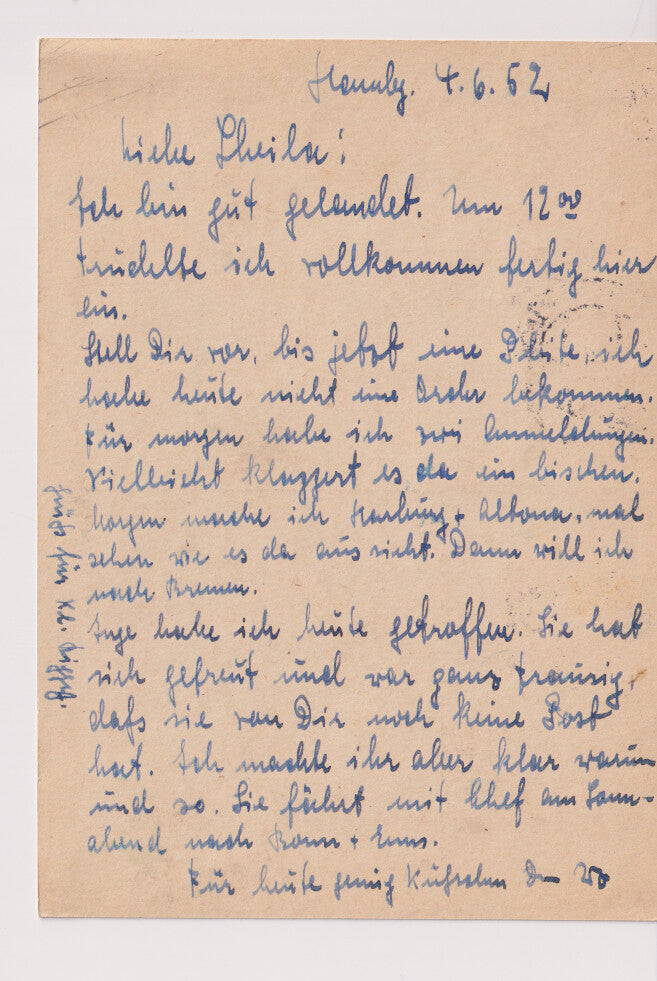 Hambg. 4.6.52
Liebe Sheila!
Ich bin gut gelandet. Um 12 00
trudelte ich vollkommen fertig hier
ein.
Stell Dir vor, bis jetzt eine Pleite, ich
habe heute nicht eine Order bekommen.
Für morgen habe ich zwei Anmeldungen.
Vielleicht klappert es da ein bischen.
Morgen mache ich Harburg + Altona, mal
sehen wie es da aussieht. Dann will ich
nach Bremen.
Inge habe ich heute getroffen. Sie hat
sich gefreut und war ganz traurig,
dafs sie von Dir noch keine Post
hat. Ich machte ihr aber klar warum
und so. Sie fährt mit Chef am Sonn-
abend nach Bonn + Ems.
Für heute genug Küfschen D
Grufs für Kl.